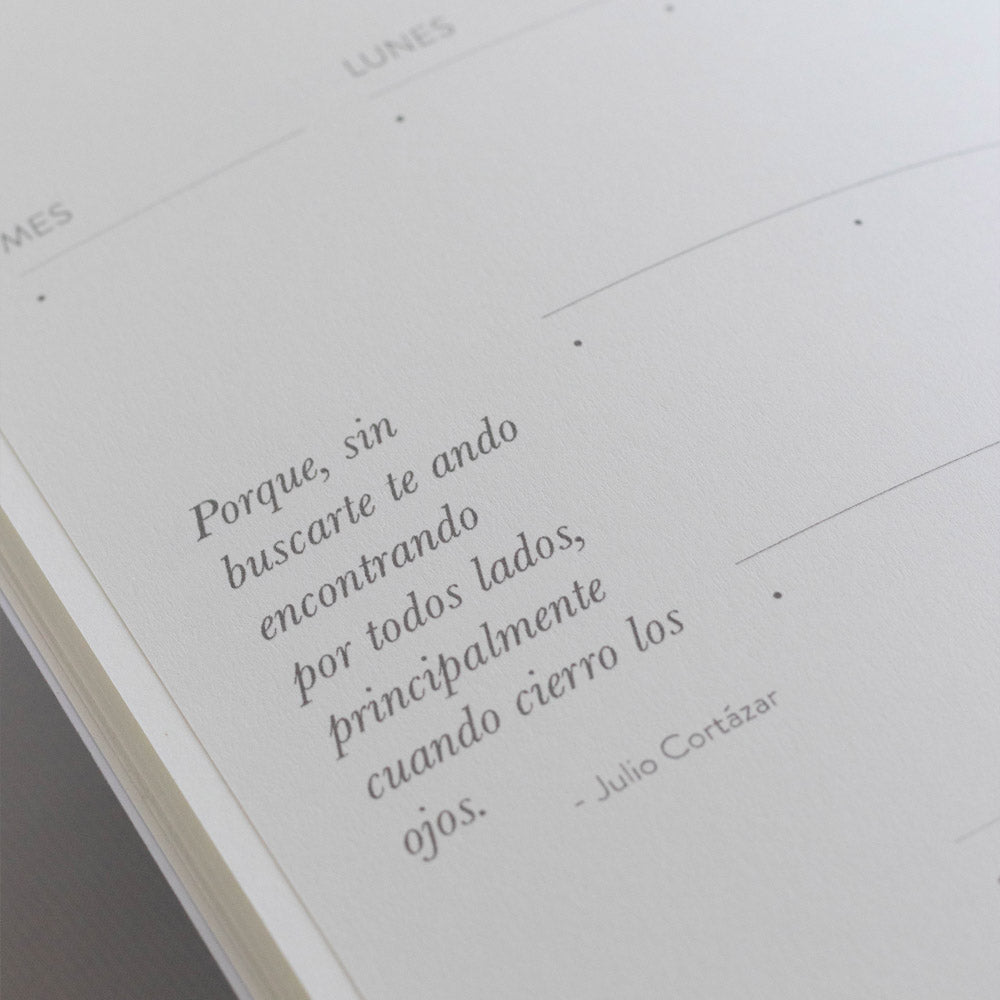 LUNES
MES
Porque, sin
buscarte te ando
encontrando
por todos lados,
principalmente
cuando cierro los
ojos.
- Julio Cortázar